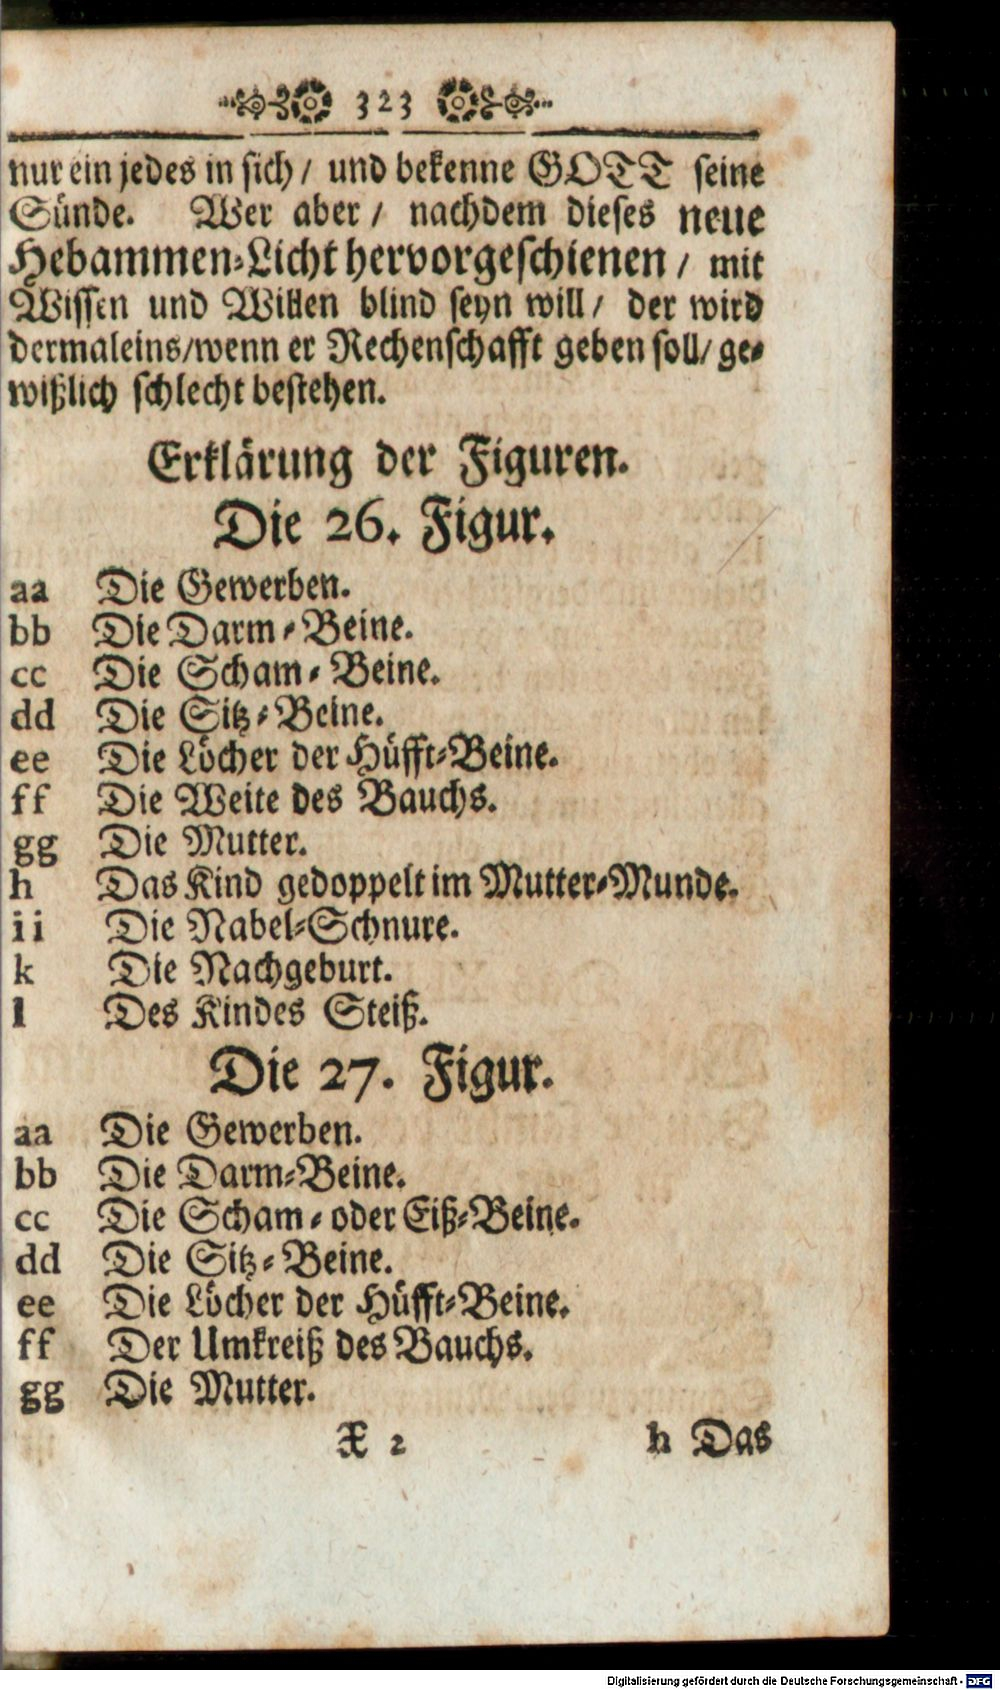 323
nur ein jedes in sich / und bekenne GOTT seine
Sünde. Wer aber / nachdem dieses neue
Hebammen-Licht hervorgeschienen / mit
Wissen und Willen blind seyn will / der wird
dermaleins/wenn er Rechenschafft geben soll/ ge-
wißlich schlecht bestehen.
Erklärung der Figuren.
Die 26. Figur.
aa Die Gewerben.
bb Die Darm-Beine.
cc Die Scham-Beine.
dd Die Sitz-Beine.
ee Die Löcher der Hüfft-Beine.
ff Die Weite des Bauchs.
gg Die Mutter.
h Das Kind gedoppelt im Mutter-Munde.
ii Die Nabel-Schnure.
k Die Nachgeburt.
l Des Kindes Steiß.
Die 27. Figur.
aa Die Gewerben.
bb Die Darm-Beine.
cc Die Scham- oder Eiß-Beine.
dd Die Sitz-Beine.
ee Die Löcher der Hüfft-Beine.
ff Der Umkreiß des Bauchs.
gg Die Mutter.
X 2 h Das
Digitalisierung gefördert durch die Deutsche Forschungsgemeinschaft - DFG